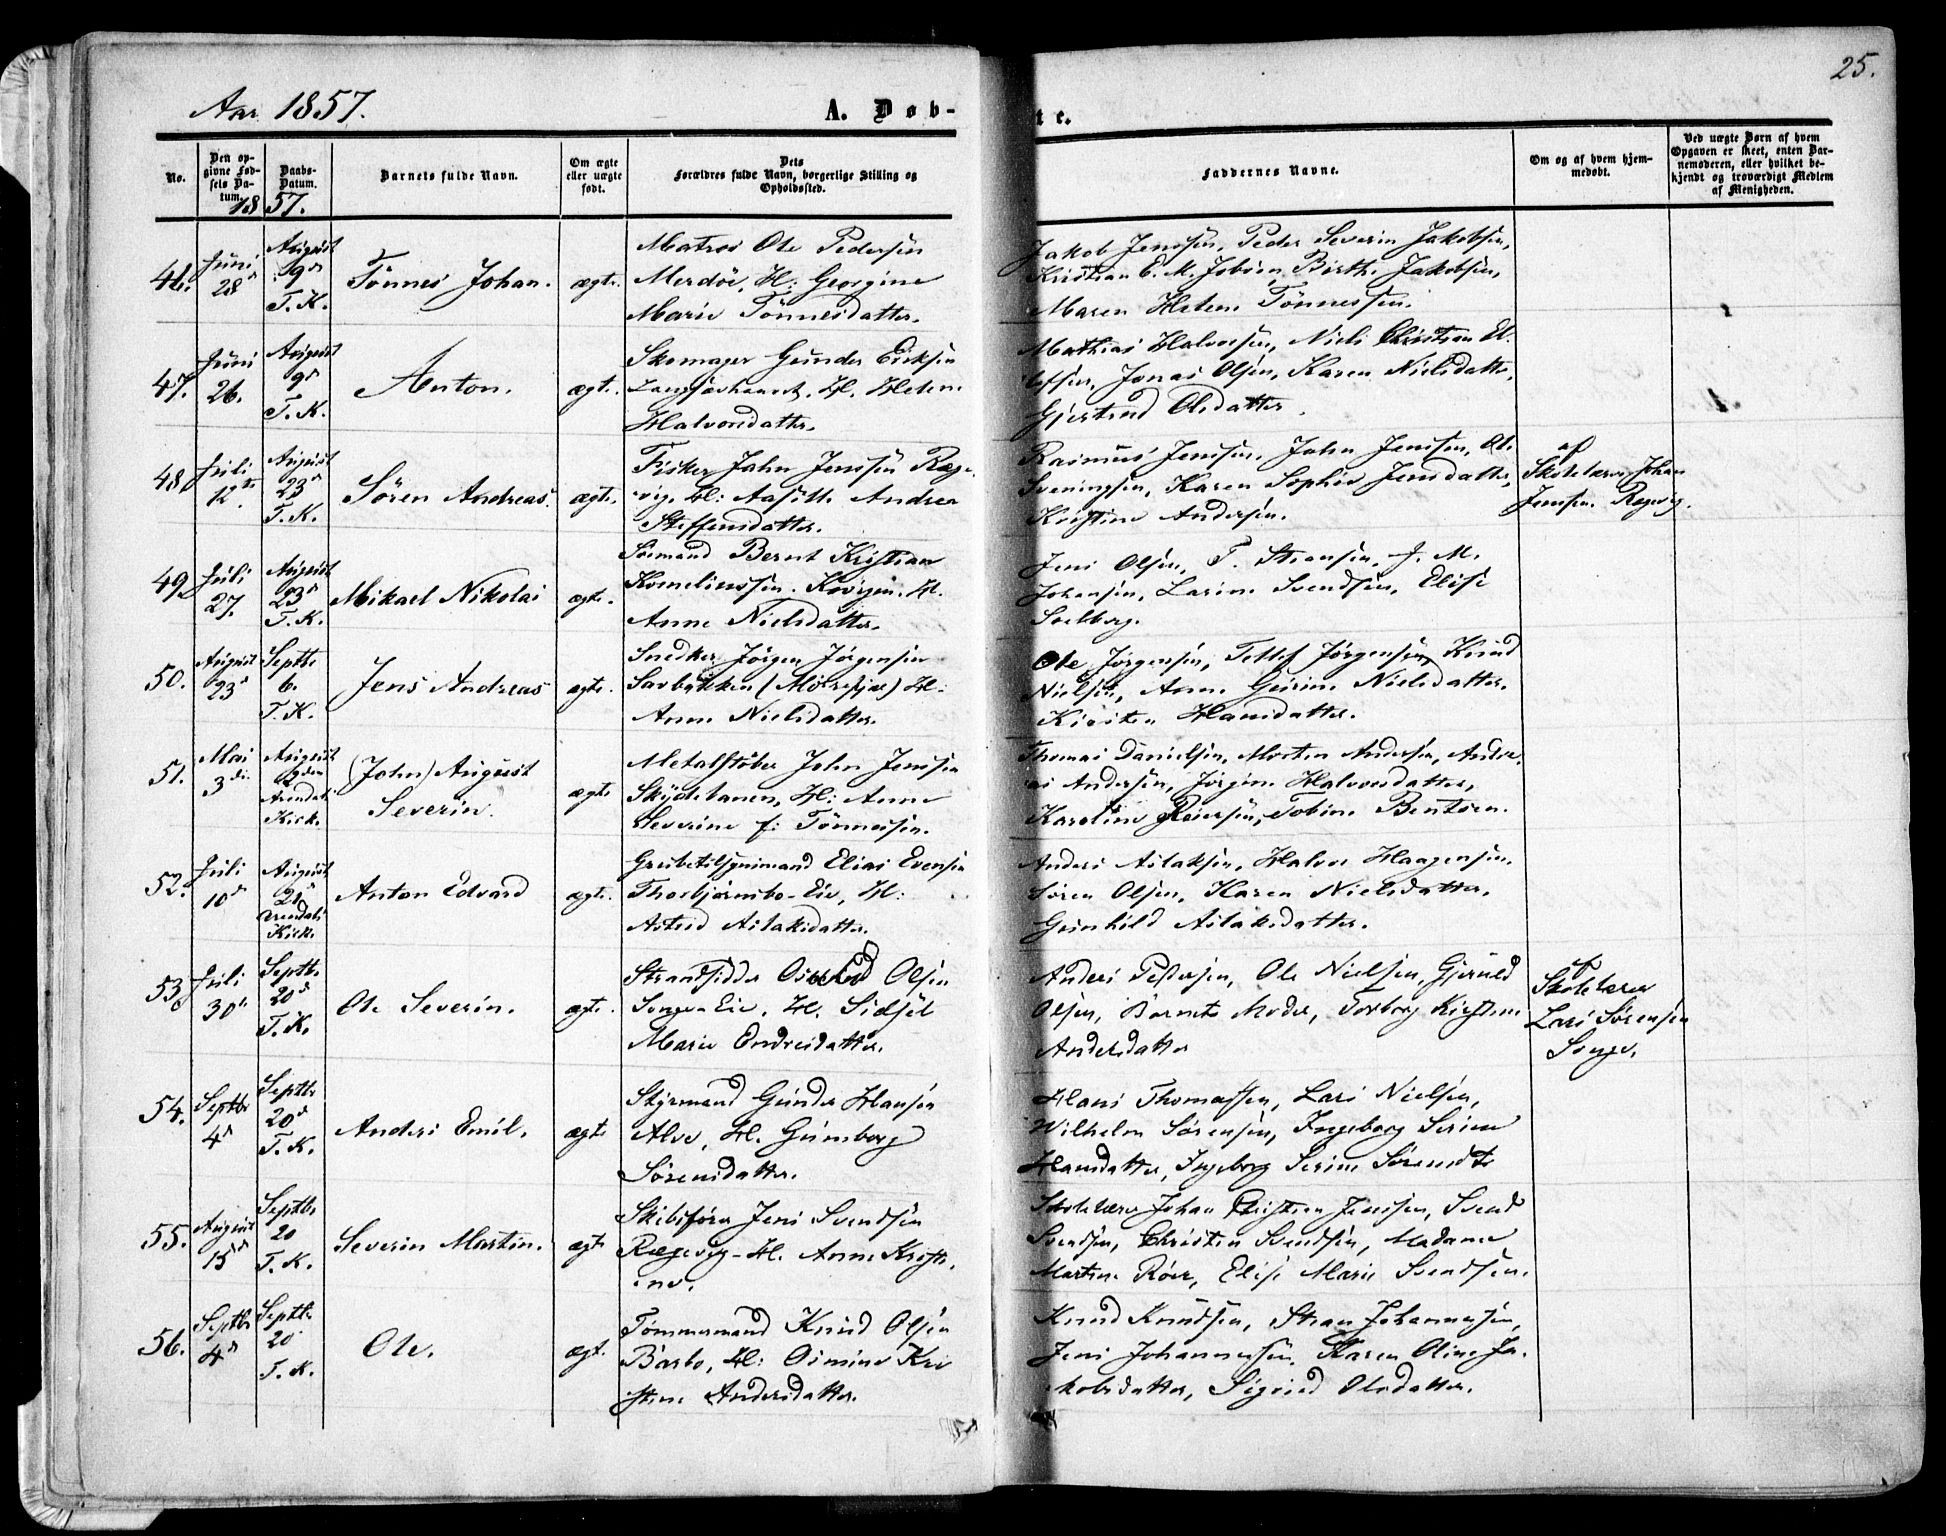 25.
Aar 1857.
A. Døb-
te.
No.
Den op-
givne Fød-
sels Da-
tum.
Daabs-
Datum.
Barnets fulde Navn.
Om ægte
eller uægte
født.
Dets
Forældres fulde Navn, borgerlige Stilling og
Opholdssted.
Faddernes Navne.
Om og af hvem hjem-
medøbt.
Ved uægte Børn af hvem
Opgaven er skeet, enten Bar-
nemoderen, eller hvilket be-
kjendt og troværdigt Medlem
af Menigheden.
1857.
46.
Juni
28
August
9
T. K.
Tönnes Johan.
ægte.
Matros Ole Pedersen
Merdöe, H: Georgine
Marie Tönnesdatter.
Jakob Jenssen, Peder Severin Jakobsen,
Kristian E. M. Birthe Jakobsen,
Maren Helene Tönnessen.
47.
Juni
26.
August
9
T. K.
Anton.
ægte.
Skomager Gunder Eriksen
H. Helene
Halvorsdatter.
Mathias Halvorsen, Niels Christian El-
lefsen, Jonas Olsen, Karen Nielsdatter,
Gjertrud Olsdatter.
48.
Juli
12.
August
23
T. K.
Sören Andreas.
ægte.
Fisker John Jenssen Ræge-
vig, H: Aasille Andrea
Steffensdatter.
Rasmus Jenssen, John Jenssen, Ole
Sveningsen, Karen Sophie Jensdatter,
Kristine Andersen.
af
Skolelærer Johan
Jenssen Rægevig.
49.
Juli
27.
August
23
T. K.
Mikael Nikolai
ægte.
Sömand Bernt Kristian
Kornelinssen. H.
Anne Nielsdatter.
Jens Olsen, T. J. M.
Johansen, Larine Svendsen, Elise
Solberg.
50.
August
23
Septbr
6.
T. K.
Jens Andreas
ægte.
Snedker Jörgen Jörgensen
Savbakken H:
Anne Nielsdatter.
Ole Jörgensen, Tellef Jörgensen, Knud
Nielsen, Anne Gurine Nielsdatter,
Kirsten Hansdatter.
51.
Mai
3die
August
Arendals
Kirk.
(John) August
Severin.
ægte
Metalstöber John Jenssen
Skydebanen, H: Anne
Severine f: Tönnesen.
Thomas Danielsen, Morten Andersen, Andre-
as Andersen, Jörgine Halvorsdatter,
Karoline Reiersen, Tobine Bentsen.
52.
Juli
10
August
21
Arendals
Kirk.
Anton Edvard
ægte.
Elias Evensen
Thorbjörnsbo-Eie, H:
Astrid Aslaksdatter.
Anders Aslaksen, Halvor Haagensen,
Sören Olsen, Karen Nielsdatter,
Gunhild Aslaksdatter.
53.
Juli
30
Septbr.
20
T. K.
Ole Severin.
ægte.
Strandsidder Osuld Olsen
Songe-Eie, H. Sidsel
Marie Endresdatter.
Anders Pedersen, Ole Nielsen, Gjeruld
Olsen, Barnets Moder, Torborg Kirstine
Andersdatter
af
Skolelærer
Lars Sörensen
Songe.
54.
Septbr
4
Septbr
20
T. K.
Anders Emil.
ægte
Gunder Hansen
Alve, H. Gunborg
Sörensdatter.
Hans Thomassen, Lars Nielsen,
Wilhelm Sörensen, Ingeborg Serine
Hansdatter, Ingeborg Serine Sörensdtr
55.
August
15
Septbr.
20
T. K.
Severin Martin.
ægte
Skibsförer Jens Svendsen
Rægevig - H. Anne Kristi-
ne.
Skolelærer Johan Christian Jenssen, Svend
Svendsen, Christen Svendsen, Madame
Martine Röer, Elise Marie Svendsen.
56.
Septbr
4
Septbr.
20
T. K.
Ole.
ægte.
Tömmermand Knud Olsen
Barbo, H: Osmine Kri-
stine Andersdatter.
Knud Knudsen, Johannesen,
Jens Johannesen, Karen Oline Ja-
kobsdatter, Sigrid Olsdatter.